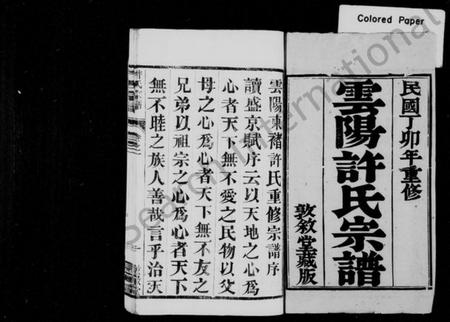 Colored Paper
民國丁卯年重修
雲陽許氏宗譜
敦敘堂藏版
雲陽東褚許氏重修宗譜序
讀盛京賦序云以天地之心爲
心者天下無不愛之民物以父
母之心爲心者天下無不友之
兄弟以祖宗之心爲心者天下
無不睦之族人善哉言乎治天